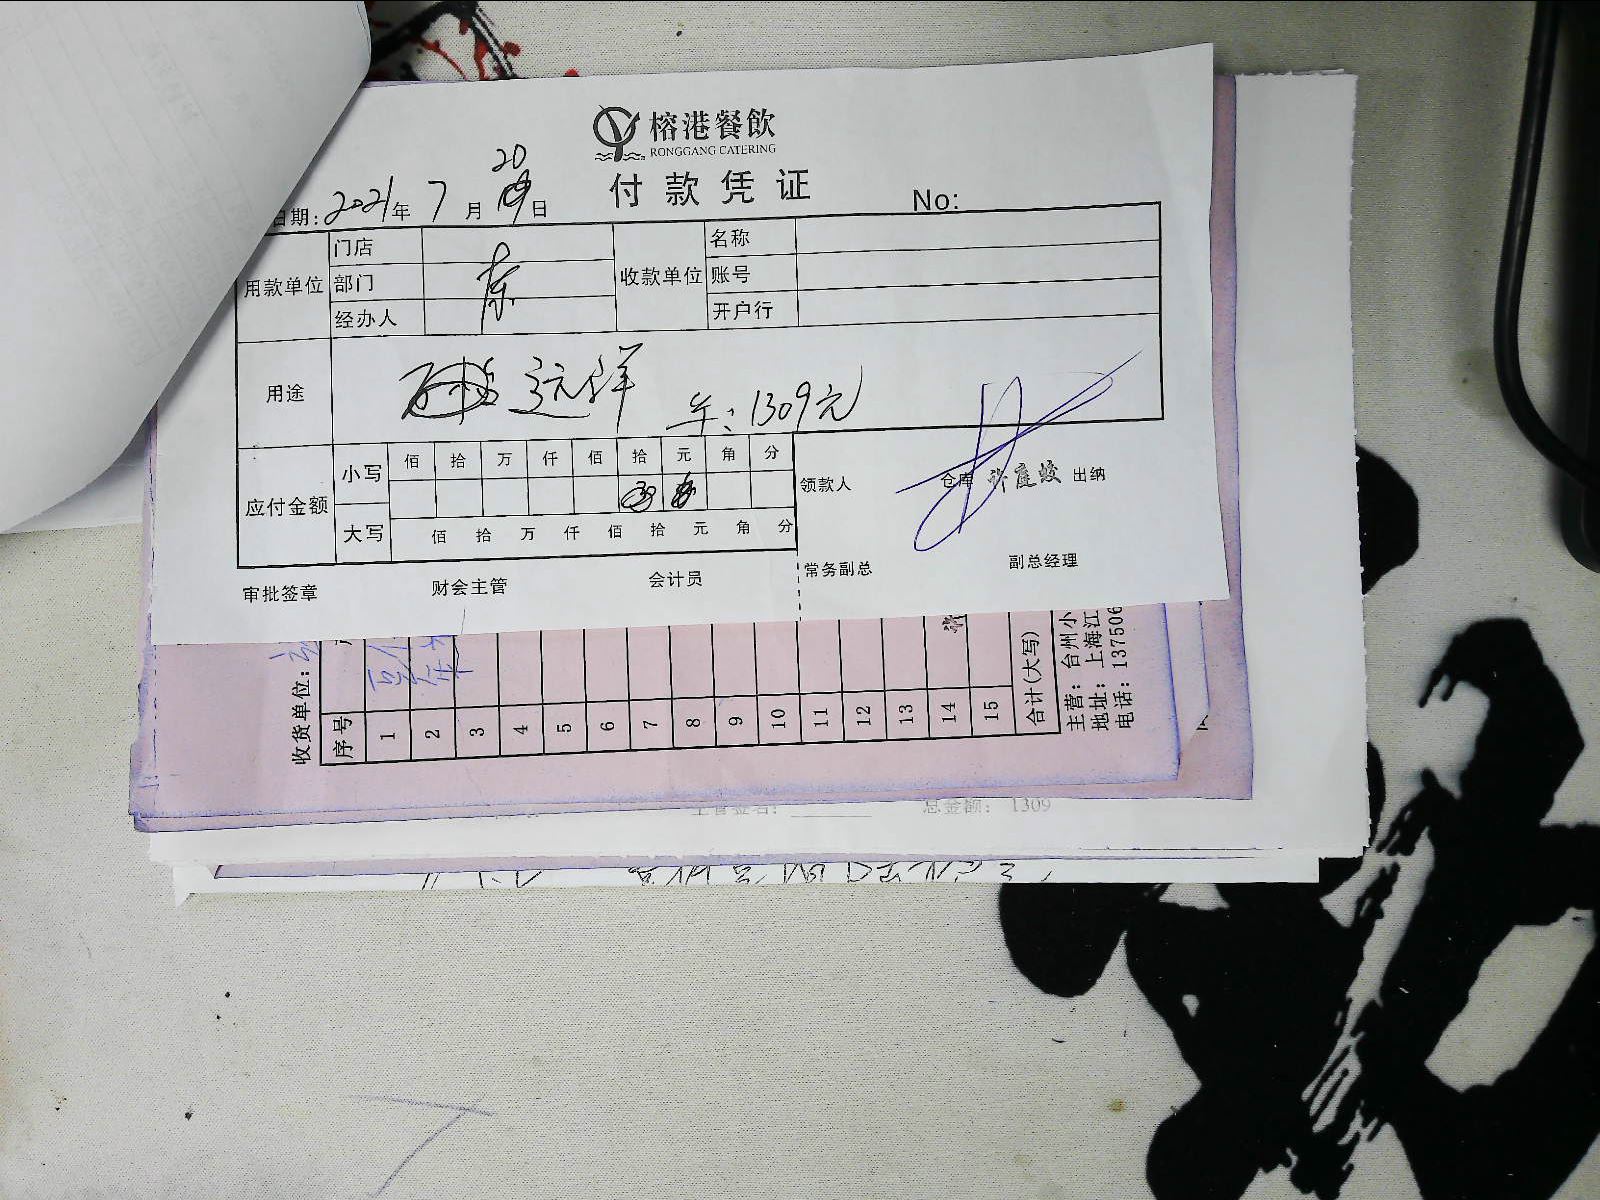 榕港餐飲
RONGGANG CATERING
付款凭证
日期: 2021年 7月 20日
No:
用款单位
门店
部门
经办人
东
收款单位
名称
账号
开户行
用途
远洋
午: 1309元
应付金额
小写
佰 拾 万 仟 佰 拾 元 角 分
大写
佰 拾 万 仟 佰 拾 元 角 分
领款人
仓库 许庭蛟 出纳
审批签章
财会主管
会计员
常务副总
副总经理
收货单位:
序号
1
2
3
4
5
6
7
8
9
10
11
12
13
14
15
合计(大写)
主营: 台州小
地址: 上海江
电话: 137506
主管签名:
总金额: 1309